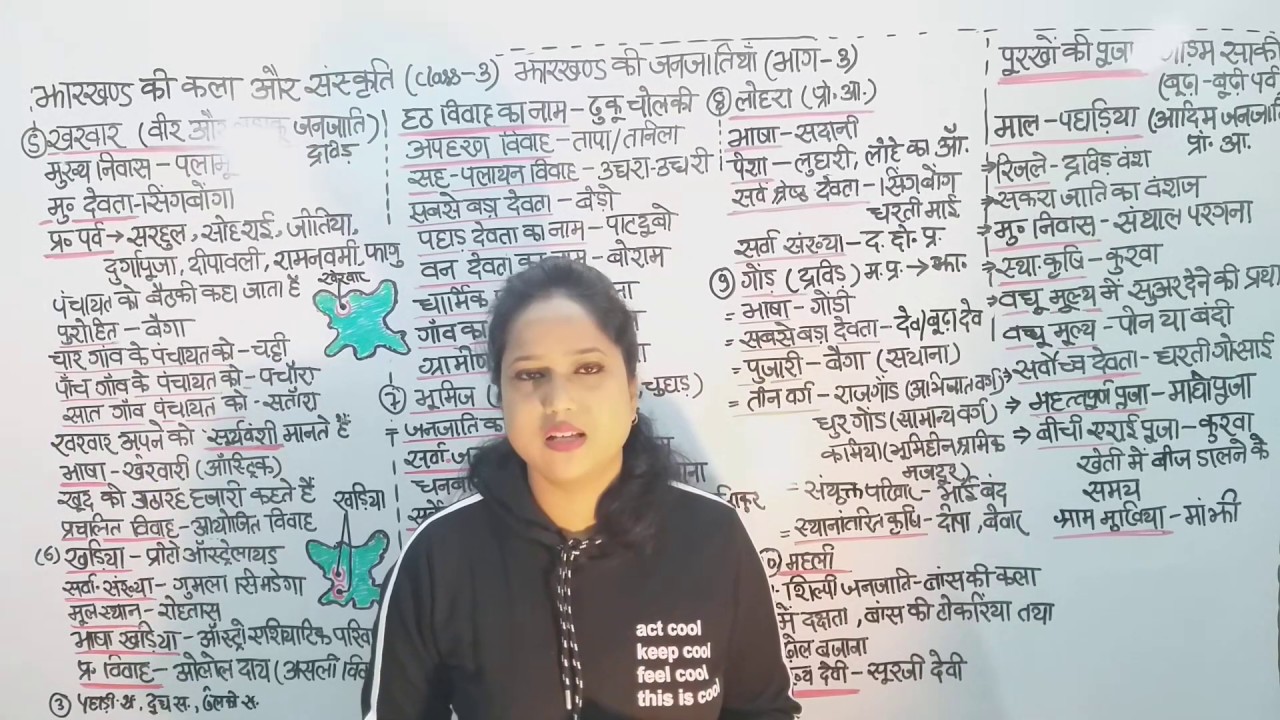 झारखण्ड की कला और संस्कृति (class-3) झारखण्ड की जनजातियाँ (भाग-3)
⑤ खरवार (वीर और जनजाति)
द्राविड़
मुख्य निवास - पलामू
मु० देवता - सिंगबोंगा
प्र० पर्व → सरहुल, सोहराई, जीतिया,
दुर्गापूजा, दीपावली, रामनवमी, फागु
पंचायत को बैठकी कहा जाता है
खरवार
पुरोहित - बैगा
चार गाँव के पंचायत को - चट्टी
पाँच गाँव के पंचायत को - पचौरा
सात गाँव पंचायत को - सतौरा
खरवार अपने को सूर्यवंशी मानते हैं
भाषा - खेरवारी (ऑस्ट्रिक)
खुद को अठारह हजारी कहते हैं
प्रचलित विवाह - आयोजित विवाह
खड़िया
(6) खड़िया - प्रोटो ऑस्ट्रेलायड
सर्वा. संख्या - गुमला सिमडेगा
मूल स्थान - रोहतास
भाषा खड़िया - ऑस्ट्रो एशियाटिक परिवा
प्र० विवाह - ओलोल दाय (असली विव
③ पहाड़ी ख., दुध ख., ढेलकी ख.
हठ विवाह का नाम - ढुकू चोलकी
अपहरण विवाह - तापा/तानिला
सह-पलायन विवाह - उधरा-उधरी
सबसे बड़ा देवता - बेड़ो
पहाड़ देवता का नाम - पाटदुबो
वन देवता का नाम - बोराम
धार्मिक
गाँव का
ग्रामीण
⑦ भूमिज ( चुहाड़)
जनजाति क
सर्वा. ज
धनबा
⑧ लोहरा (प्रो. आ.)
भाषा - सदानी
पेशा - लुहारी, लोहे का औ.
सर्व श्रेष्ठ देवता - सिंगबोंग
धरती माई
सर्वा संख्या - द. छो. प्र.
⑨ गोंड (द्राविड) म. प्र. → झा.
= भाषा - गोंडी
= सबसे बड़ा देवता - देव/बूढ़ा देव
= पुजारी - बैगा (सयाना)
= तीन वर्ग - राजगोंड (अभिजात वर्ग)
धुर गोंड (सामान्य वर्ग)
कामिया (भूमिहीन श्रमिक
मजदूर)
= संयुक्त परिवार - भाई बंद
= स्थानांतरित कृषि - दीपा, बेवार
महली
शिल्पी जनजाति - बांस की कला
में दक्षता, बांस की टोकरिया तथा
ढोल बजाना
देवी - सूरजी देवी
पूरखों की पूजा
(बूढ़ा-बूढ़ी पर्व
माल - पहाड़िया (आदिम जनजाति
प्रो. आ.
→ रिजले - द्राविड़ वंश
→ सकरा जाति का वंशज
→ मु० निवास - संथाल परगना
→ स्था. कृषि - कुरवा
→ वधू मूल्य में सुअर देने की प्रथा
वधू मूल्य - पोन या बंदी
→ सर्वोच्च देवता - धरती गोसाई
→ महत्वपूर्ण पूजा - माघी पूजा
→ बीची सराई पूजा - कुरवा
खेती में बीज डालने के
समय
ग्राम मुखिया - मांझी
act cool
keep cool
feel cool
this is cool